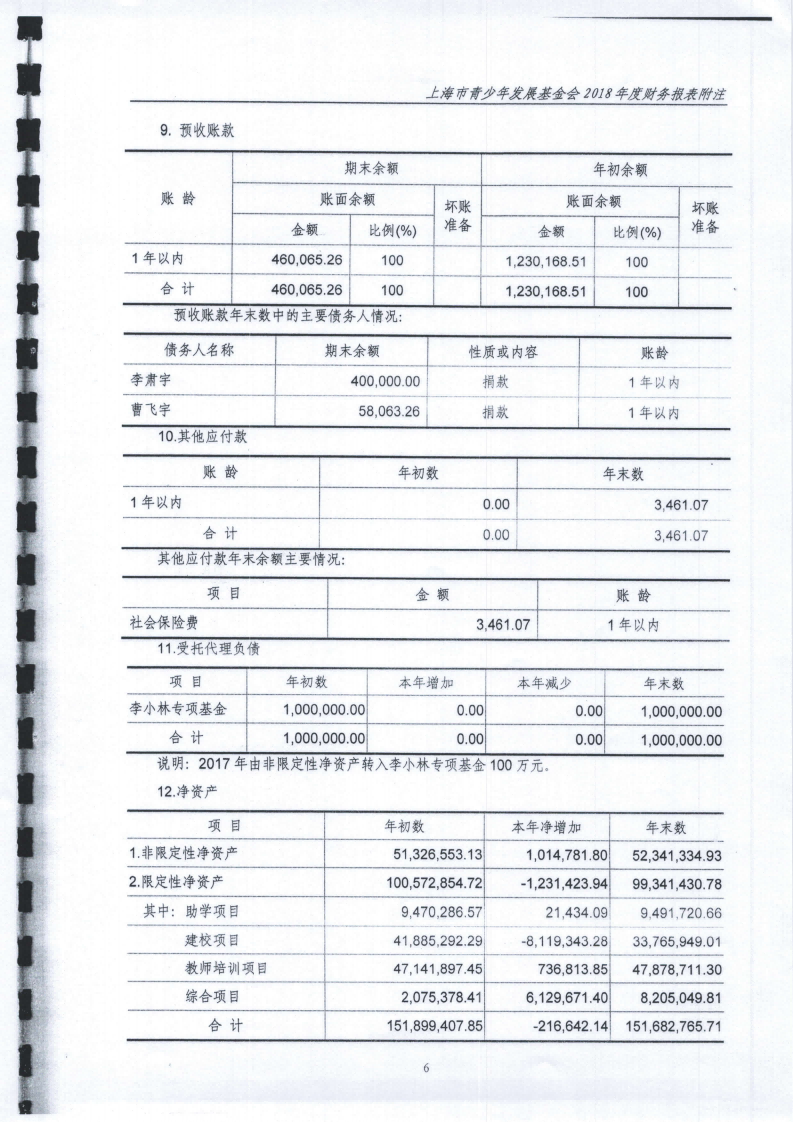 上海市青少年发展基金会 2018 年度财务报表附注
9. 预收账款
账 龄 期末余额 年初余额
账面余额 坏账准备 账面余额 坏账准备
金额 比例(%) 金额 比例(%)
1 年以内 460,065.26 100 1,230,168.51 100
合 计 460,065.26 100 1,230,168.51 100
预收账款年末数中的主要债务人情况:
债务人名称 期末余额 性质或内容 账龄
李肃宇 400,000.00 捐款 1 年以内
曹飞宇 58,063.26 捐款 1 年以内
10.其他应付款
账 龄 年初数 年末数
1 年以内 0.00 3,461.07
合 计 0.00 3,461.07
其他应付款年末余额主要情况:
项 目 金 额 账 龄
社会保险费 3,461.07 1 年以内
11.受托代理负债
项 目 年初数 本年增加 本年减少 年末数
李小林专项基金 1,000,000.00 0.00 0.00 1,000,000.00
合 计 1,000,000.00 0.00 0.00 1,000,000.00
说明: 2017 年由非限定性净资产转入李小林专项基金 100 万元。
12.净资产
项 目 年初数 本年净增加 年末数
1.非限定性净资产 51,326,553.13 1,014,781.80 52,341,334.93
2.限定性净资产 100,572,854.72 -1,231,423.94 99,341,430.78
其中: 助学项目 9,470,286.57 21,434.09 9,491,720.66
建校项目 41,885,292.29 -8,119,343.28 33,765,949.01
教师培训项目 47,141,897.45 736,813.85 47,878,711.30
综合项目 2,075,378.41 6,129,671.40 8,205,049.81
合 计 151,899,407.85 -216,642.14 151,682,765.71
6